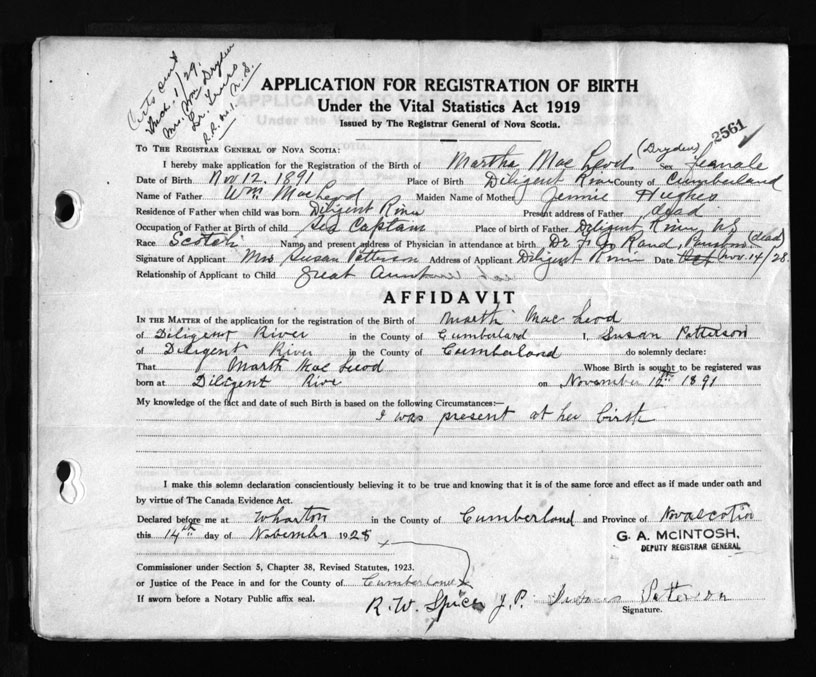 Mch. 1/29.
Mrs. Wm Dryden
R.R. No. 1. N.S.
APPLICATION FOR REGISTRATION OF BIRTH
Under the Vital Statistics Act 1919
Issued by The Registrar General of Nova Scotia.
2561
TO THE REGISTRAR GENERAL OF NOVA SCOTIA:
(Dryden)
I hereby make application for the Registration of the Birth of Martha Mac Leod Sex female
Date of Birth Nov 12, 1891 Place of Birth Diligent River County of Cumberland
Name of Father Wm. MacLeod Maiden Name of Mother Jennie Hughes
Residence of Father when child was born Diligent River Present address of Father dead
Occupation of Father at Birth of child Sea Captain Place of birth of Father Diligent River NS
Race Scotch Name and present address of Physician in attendance at birth Dr Rand, (dead)
Signature of Applicant Mrs Susan Patterson Address of Applicant Diligent River Date Nov. 14/28.
Relationship of Applicant to Child great Aunt
AFFIDAVIT
IN THE MATTER of the application for the registration of the Birth of Marth Mac Leod
of Diligent River in the County of Cumberland I, Susan Patterson
of Diligent River in the County of Cumberland do solemnly declare:
That Marth Mac Leod Whose Birth is sought to be registered was
born at Diligent River on November 12th 1891
My knowledge of the fact and date of such Birth is based on the following Circumstances:—
I was present at her birth
I make this solemn declaration conscientiously believing it to be true and knowing that it is of the same force and effect as if made under oath and
by virtue of The Canada Evidence Act.
Declared before me at Wharton in the County of Cumberland and Province of Nova Scotia
this 14th day of November 1928
G. A. MCINTOSH,
DEPUTY REGISTRAR GENERAL
Commissioner under Section 5, Chapter 38, Revised Statutes, 1923.
or Justice of the Peace in and for the County of Cumberland
If sworn before a Notary Public affix seal.
R. W. Spicer J.P. Susan Patterson
Signature.